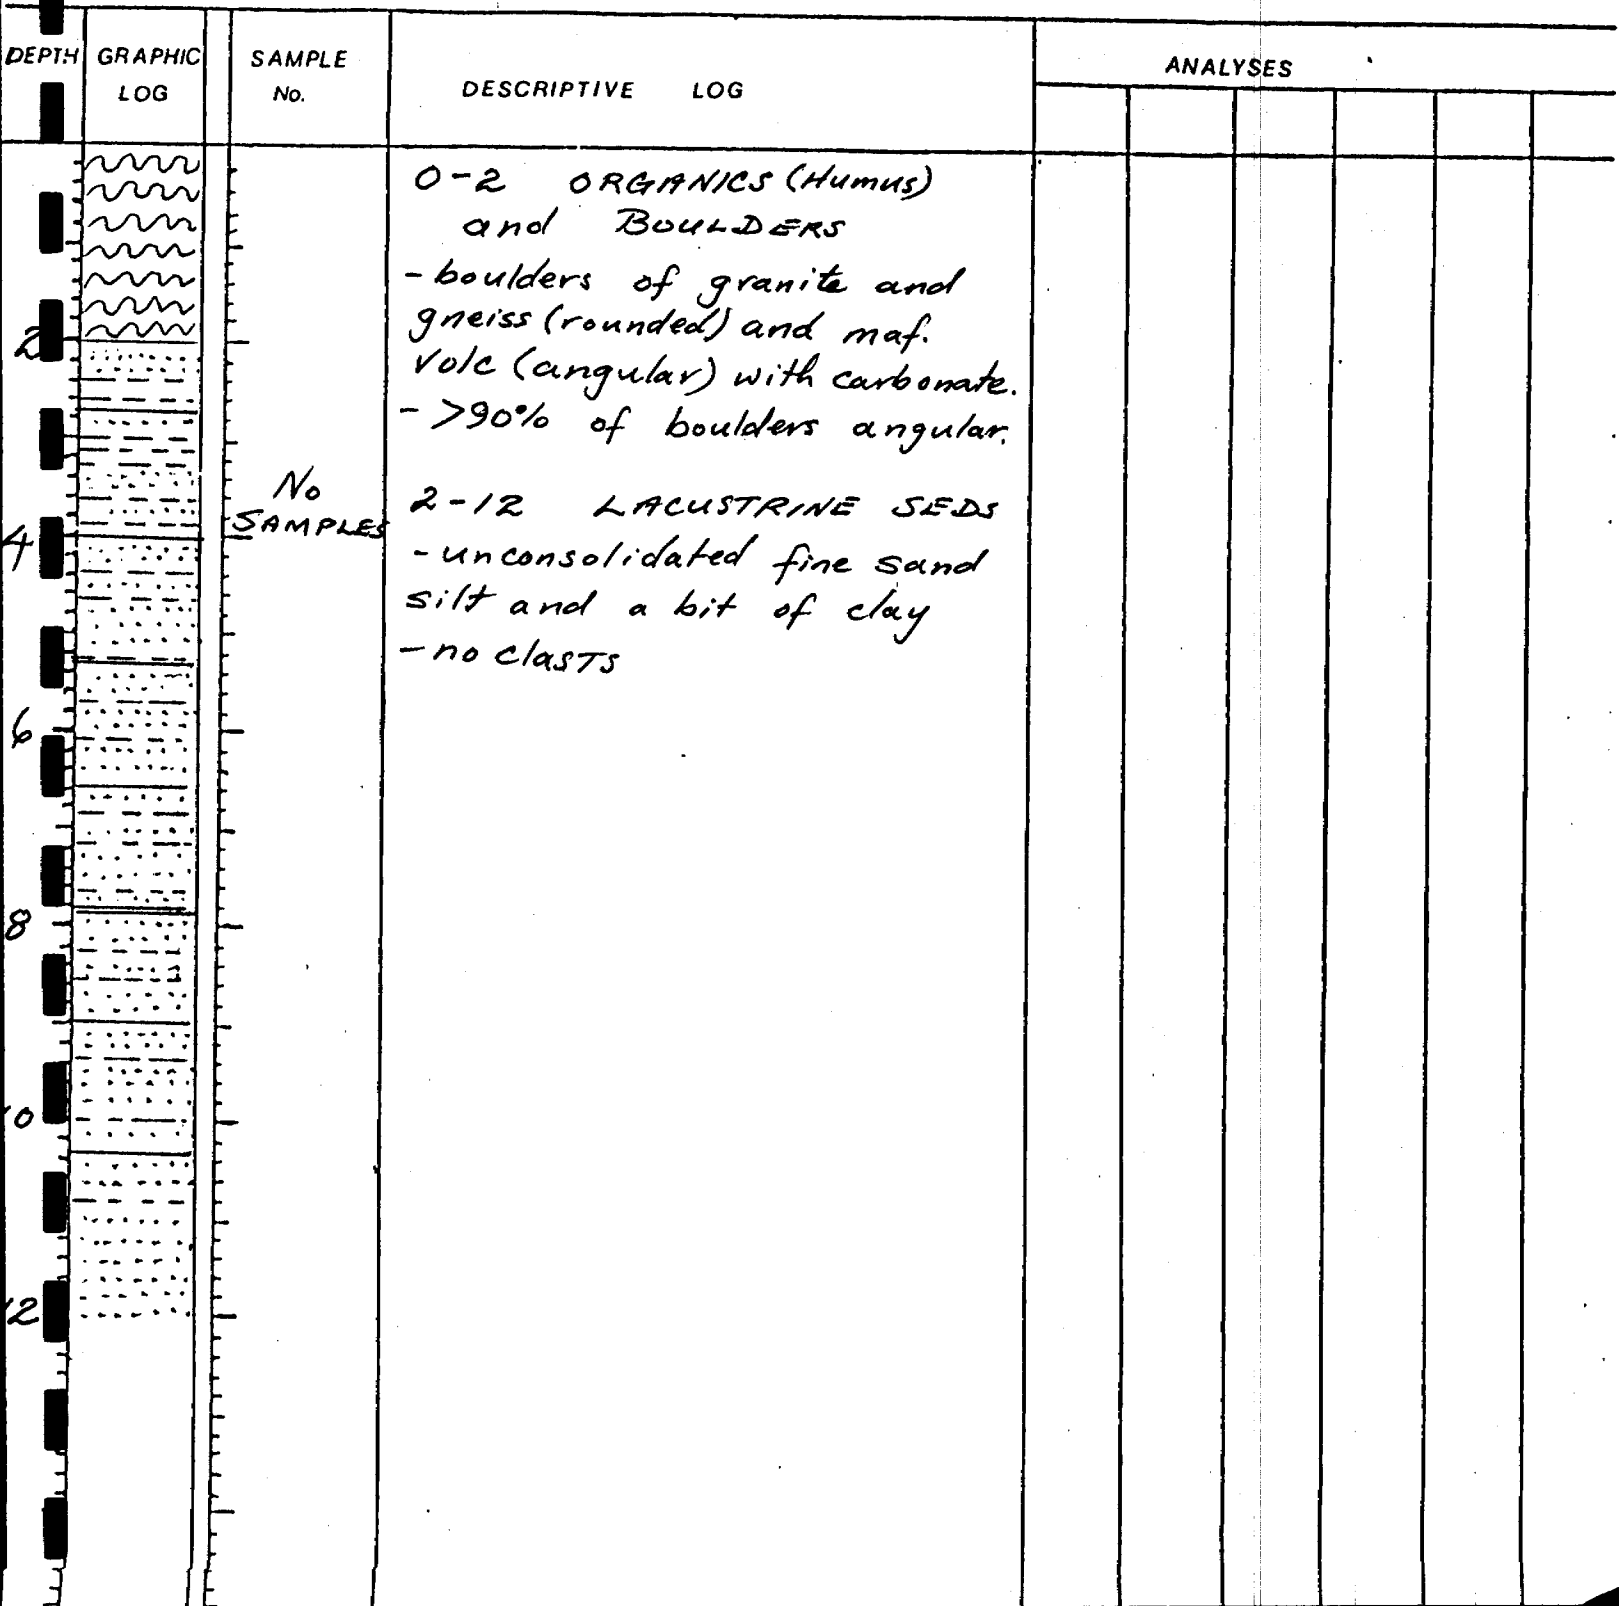 DEPTH GRAPHIC LOG SAMPLE No. DESCRIPTIVE LOG ANALYSES
0-2 ORGANICS (Humus)
and BOULDERS
- boulders of granite and
gneiss (rounded) and maf.
volc (angular) with carbonate.
- >90% of boulders angular.
No
SAMPLES
2-12 LACUSTRINE SEDS
- unconsolidated fine sand
silt and a bit of clay
- no clasts
2
4
6
8
10
12